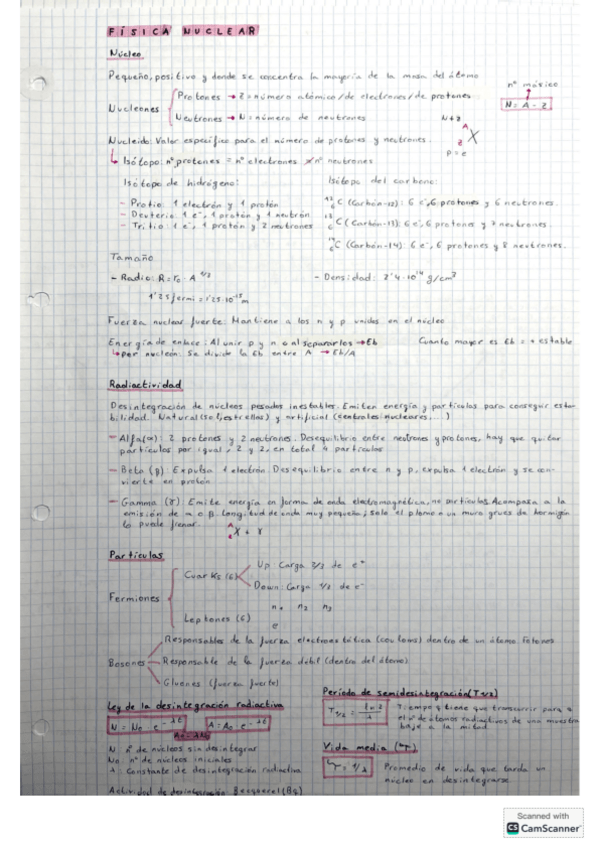 FÍSICA NUCLEAR
Núcleo
Pequeño, positivo y donde se concentra la mayoría de la masa del átomo
nº másico
Nucleones
Protones → Z = número atómico/de electrones/de protones
N = A - Z
Neutrones → N = número de neutrones
N+Z
A
Z X
p = e
Nucleido: Valor específico para el número de protones y neutrones.
Isótopo: nº protones = nº electrones ≠ nº neutrones
Isótopo de hidrógeno:
Isótopo del carbono:
- Protio: 1 electrón y 1 protón
12 6 C (Carbón-12): 6 e⁻, 6 protones y 6 neutrones.
- Deuterio: 1 e⁻, 1 protón y 1 neutrón
13 6 C (Carbón-13): 6 e⁻, 6 protones y 7 neutrones.
- Tritio: 1 e⁻, 1 protón y 2 neutrones
14 6 C (Carbón-14): 6 e⁻, 6 protones y 8 neutrones.
Tamaño
- Radio: R = r₀ · A^1/3
- Densidad: 2'4·10^14 g/cm³
1'25 fermi = 1'25·10^-15 m
Fuerza nuclear fuerte: Mantiene a los n y p unidos en el núcleo
Energía de enlace: Al unir p y n o al separarlos → Eb
Cuanto mayor es Eb = + estable
por nucleón: Se divide la Eb entre A → Eb/A
Radiactividad
Desintegración de núcleos pesados inestables. Emiten energía y partículas para conseguir esta-
bilidad. Natural (sol, estrellas) y artificial (centrales nucleares, ...)
- Alfa (α): 2 protones y 2 neutrones. Desequilibrio entre neutrones y protones, hay que quitar
partículas por igual, 2 y 2, en total 4 partículas
- Beta (β): Expulsa 1 electrón. Desequilibrio entre n y p, expulsa 1 electrón y se con-
vierte en protón
- Gamma (γ): Emite energía en forma de onda electromagnética, no partículas. Acompaña a la
emisión de α o β. Longitud de onda muy pequeña, solo el plomo o un muro grueso de hormigón
lo puede frenar.
X + γ
Partículas
Fermiones
Cuarks (6)
Up: Carga 2/3 de e⁺
Down: Carga 1/3 de e⁻
Leptones (6)
n₁ n₂ n₃
e
Bosones
Responsables de la fuerza electrostática (coulomb) dentro de un átomo Fotones
Responsable de la fuerza débil (dentro del átomo)
Gluones (fuerza fuerte)
Ley de la desintegración radiactiva
Periodo de semidesintegración (T 1/2)
N = N₀ · e^-λt
A = A₀ · e^-λt
A₀ = λN₀
T 1/2 = ln 2 / λ
Tiempo q tiene que transcurrir para q
el nº de átomos radiactivos de una muestra
baje a la mitad
N nº de núcleos sin desintegrar
N₀ nº de núcleos iniciales
λ: Constante de desintegración radiactiva
Vida media (τ)
τ = 1/λ
Promedio de vida que tarda un
núcleo en desintegrarse
Actividad de desintegración Becquerel (Bq)
Scanned with
CS CamScanner